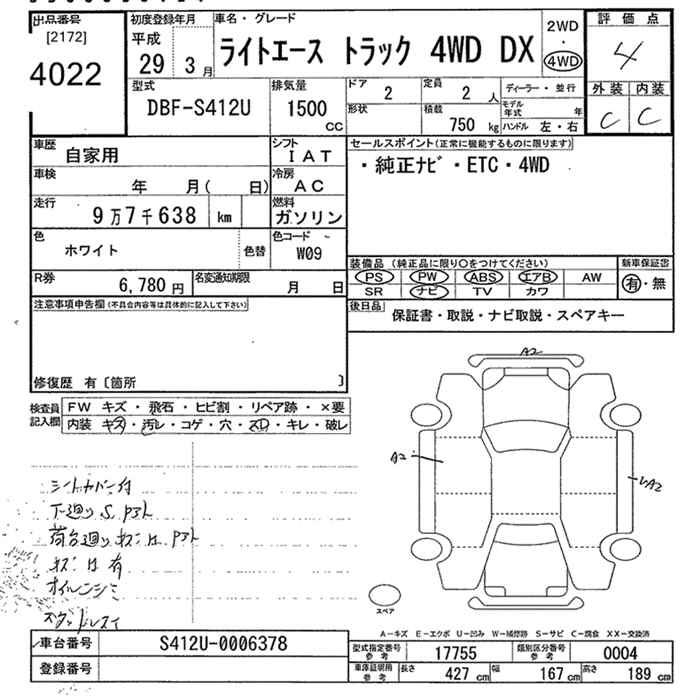 出品番号
[2172]
4022
初度登録年月
平成
29 3月
車名・グレード
ライトエース トラック 4WD DX
2WD
・
4WD
評価点
4
外装 内装
C C
型式
DBF-S412U
排気量
1500
cc
ドア
2
定員
2 人
ディーラー・並行
形状
積載
750 kg
モデル年式 年
ハンドル 左・右
車歴
自家用
シフト
IAT
車検
年 月( 日)
冷房
AC
走行
9万7千638 km
燃料
ガソリン
色
ホワイト
色替
色コード
W09
R券
6,780円
名変通知期限
月 日
セールスポイント(正常に機能するものに限ります)
・純正ナビ・ETC・4WD
装備品(純正品に限り○をつけてください)
PS PW ABS エアB AW
SR ナビ TV カワ
新車保証書
有・無
後日品
保証書・取説・ナビ取説・スペアキー
注意事項申告欄(不具合内容等は具体的に記入して下さい)
修復歴 有〔箇所 〕
検査員記入欄
FW キズ・飛石・ヒビ割・リペア跡・×要
内装 キズ・汚レ・コゲ・穴・スレ・キレ・破レ
シートカバー付
下廻りS
荷台廻りキズ
オイルニジミ
スタッドレス
A2
A2
A2
スペア
A-キズ E-エクボ U-凹み W-補修跡 S-サビ C-腐食 XX-交換済
車台番号
S412U-0006378
登録番号
型式指定番号
参考
17755
類別区分番号
参考
0004
車庫証明用
参考
長さ
427 cm
幅
167 cm
高さ
189 cm